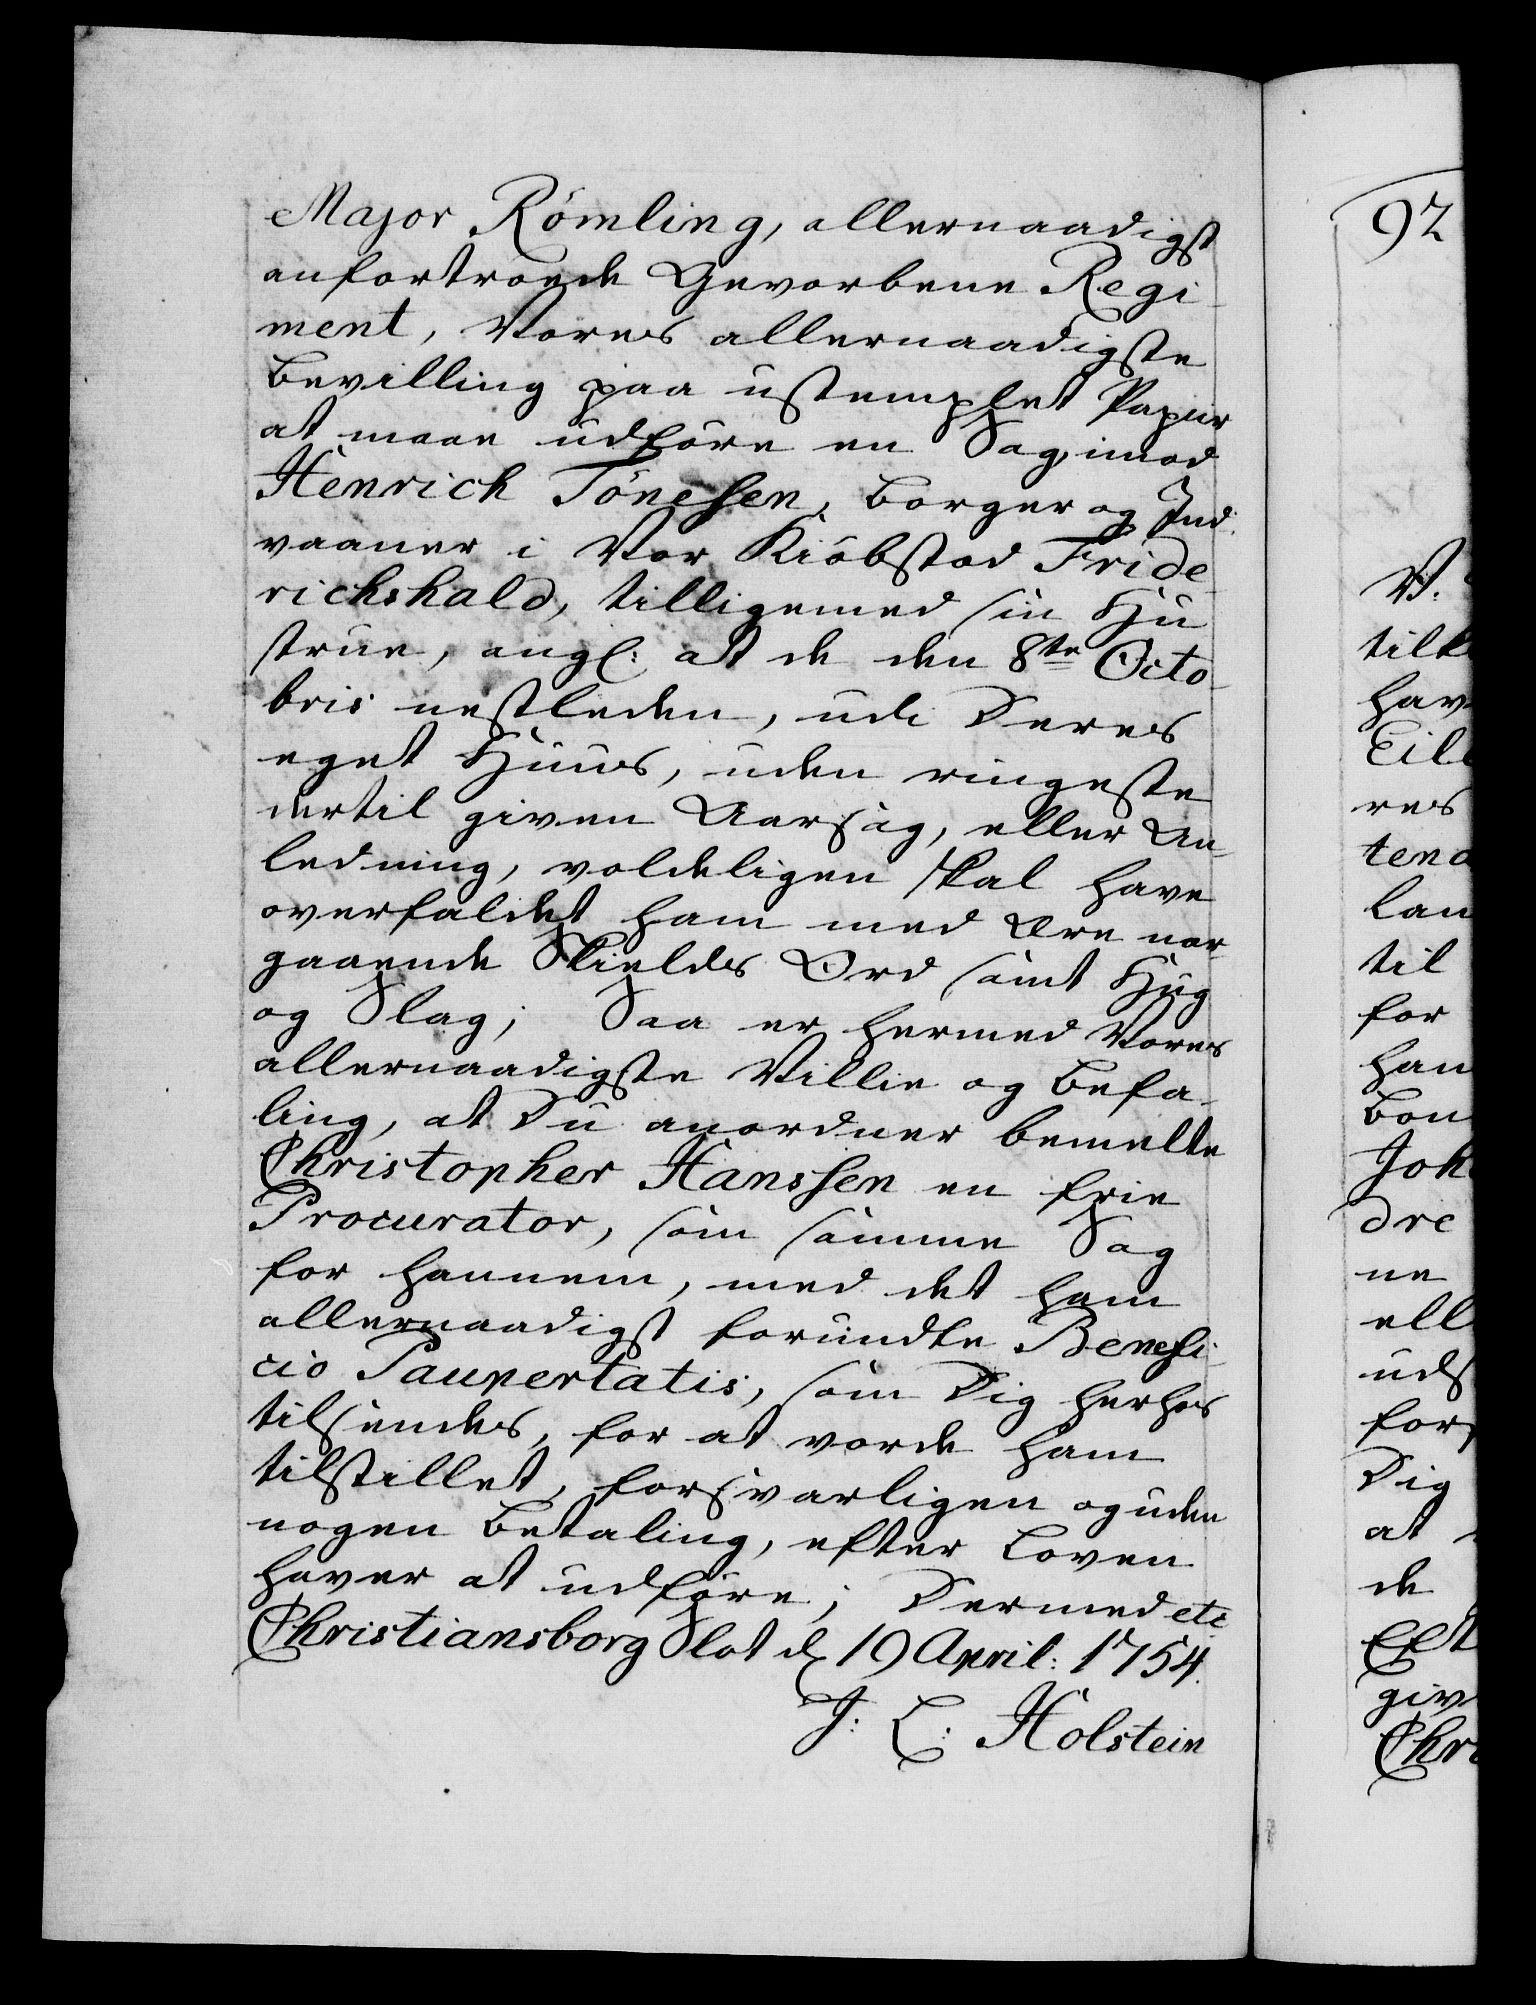 Major Römling, allernaadigst
anfortroede Gevorbene Regi-
ment, Vores allernaadigste
Bevilling paa ustemplet Papiir
at maae udföre en Sag, imod
Henrich Tönesen, Borger og Ind-
vaaner i Vor Kiöbstad Fride-
richshald, tilligemed sin Hu-
strue, angl: at de den 8de Octo-
bris nestleden, udi Deres
eget Huus, uden ringeste
dertil given Aarsag, eller An-
ledning, voldeligen skal have
overfaldet ham med Ære nær-
gaaende Skields Ord samt Hug
og Slag; Saa er hermed Vores
allernaadigste Villie og Befa-
ling, at Du anordner bemelte
Christopher Hanssen en frie
Procurator, som samme Sag
for hannem, med det ham
allernaadigst forundte Benefi-
cio Paupertatis, som Dig herhos
tilsendes, for at vorde ham
tilstillet, forsvarligen og uden
nogen Betaling, efter Loven
haver at udföre; Dermed etc
Christiansborg Slot d 19 April: 1754.
J: L: Holstein
92
V.
tilk
hav
Eil
res
tena
lan
til
for
han
Bon
Joh
dre
ne
ell
uds
fors
Dig
at
de
Eft
giv
Chri